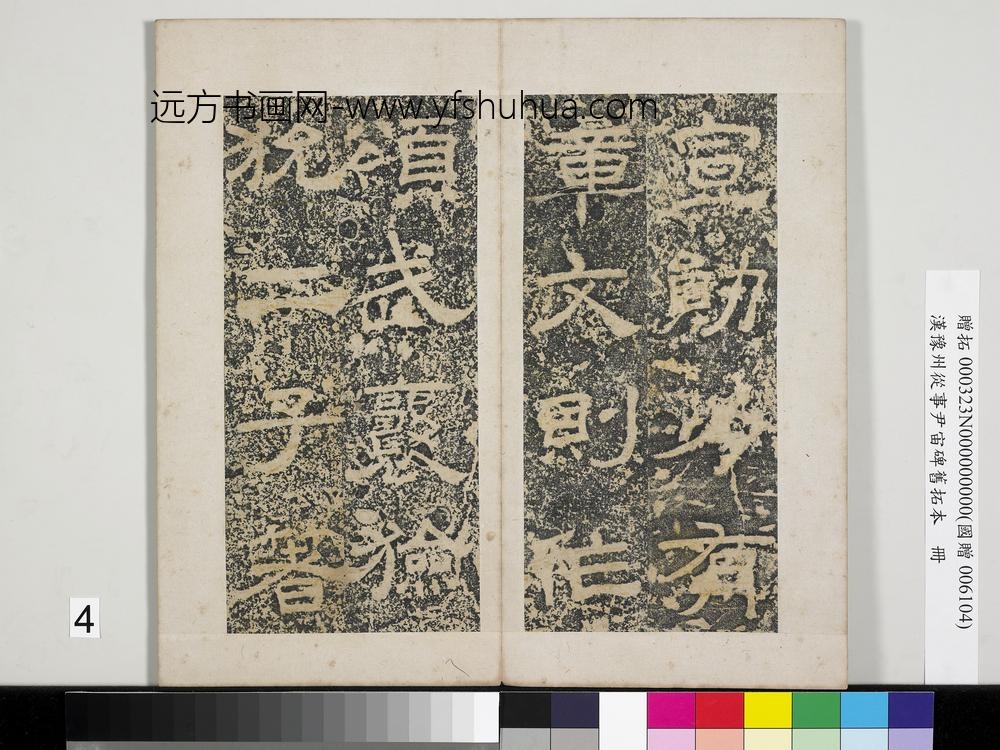 远方书画网-www.yfshuhua.com
宣勛力有
章文則作
頌武襄獫
狁二子著
贈拓 000323N000000000(國贈 006104)
漢豫州從事尹宙碑舊拓本 冊
4